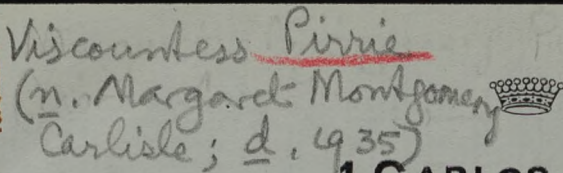 Viscountess Pirrie
(n. Margaret Montgomery
Carlisle; d. 1935)
1 CARLOS